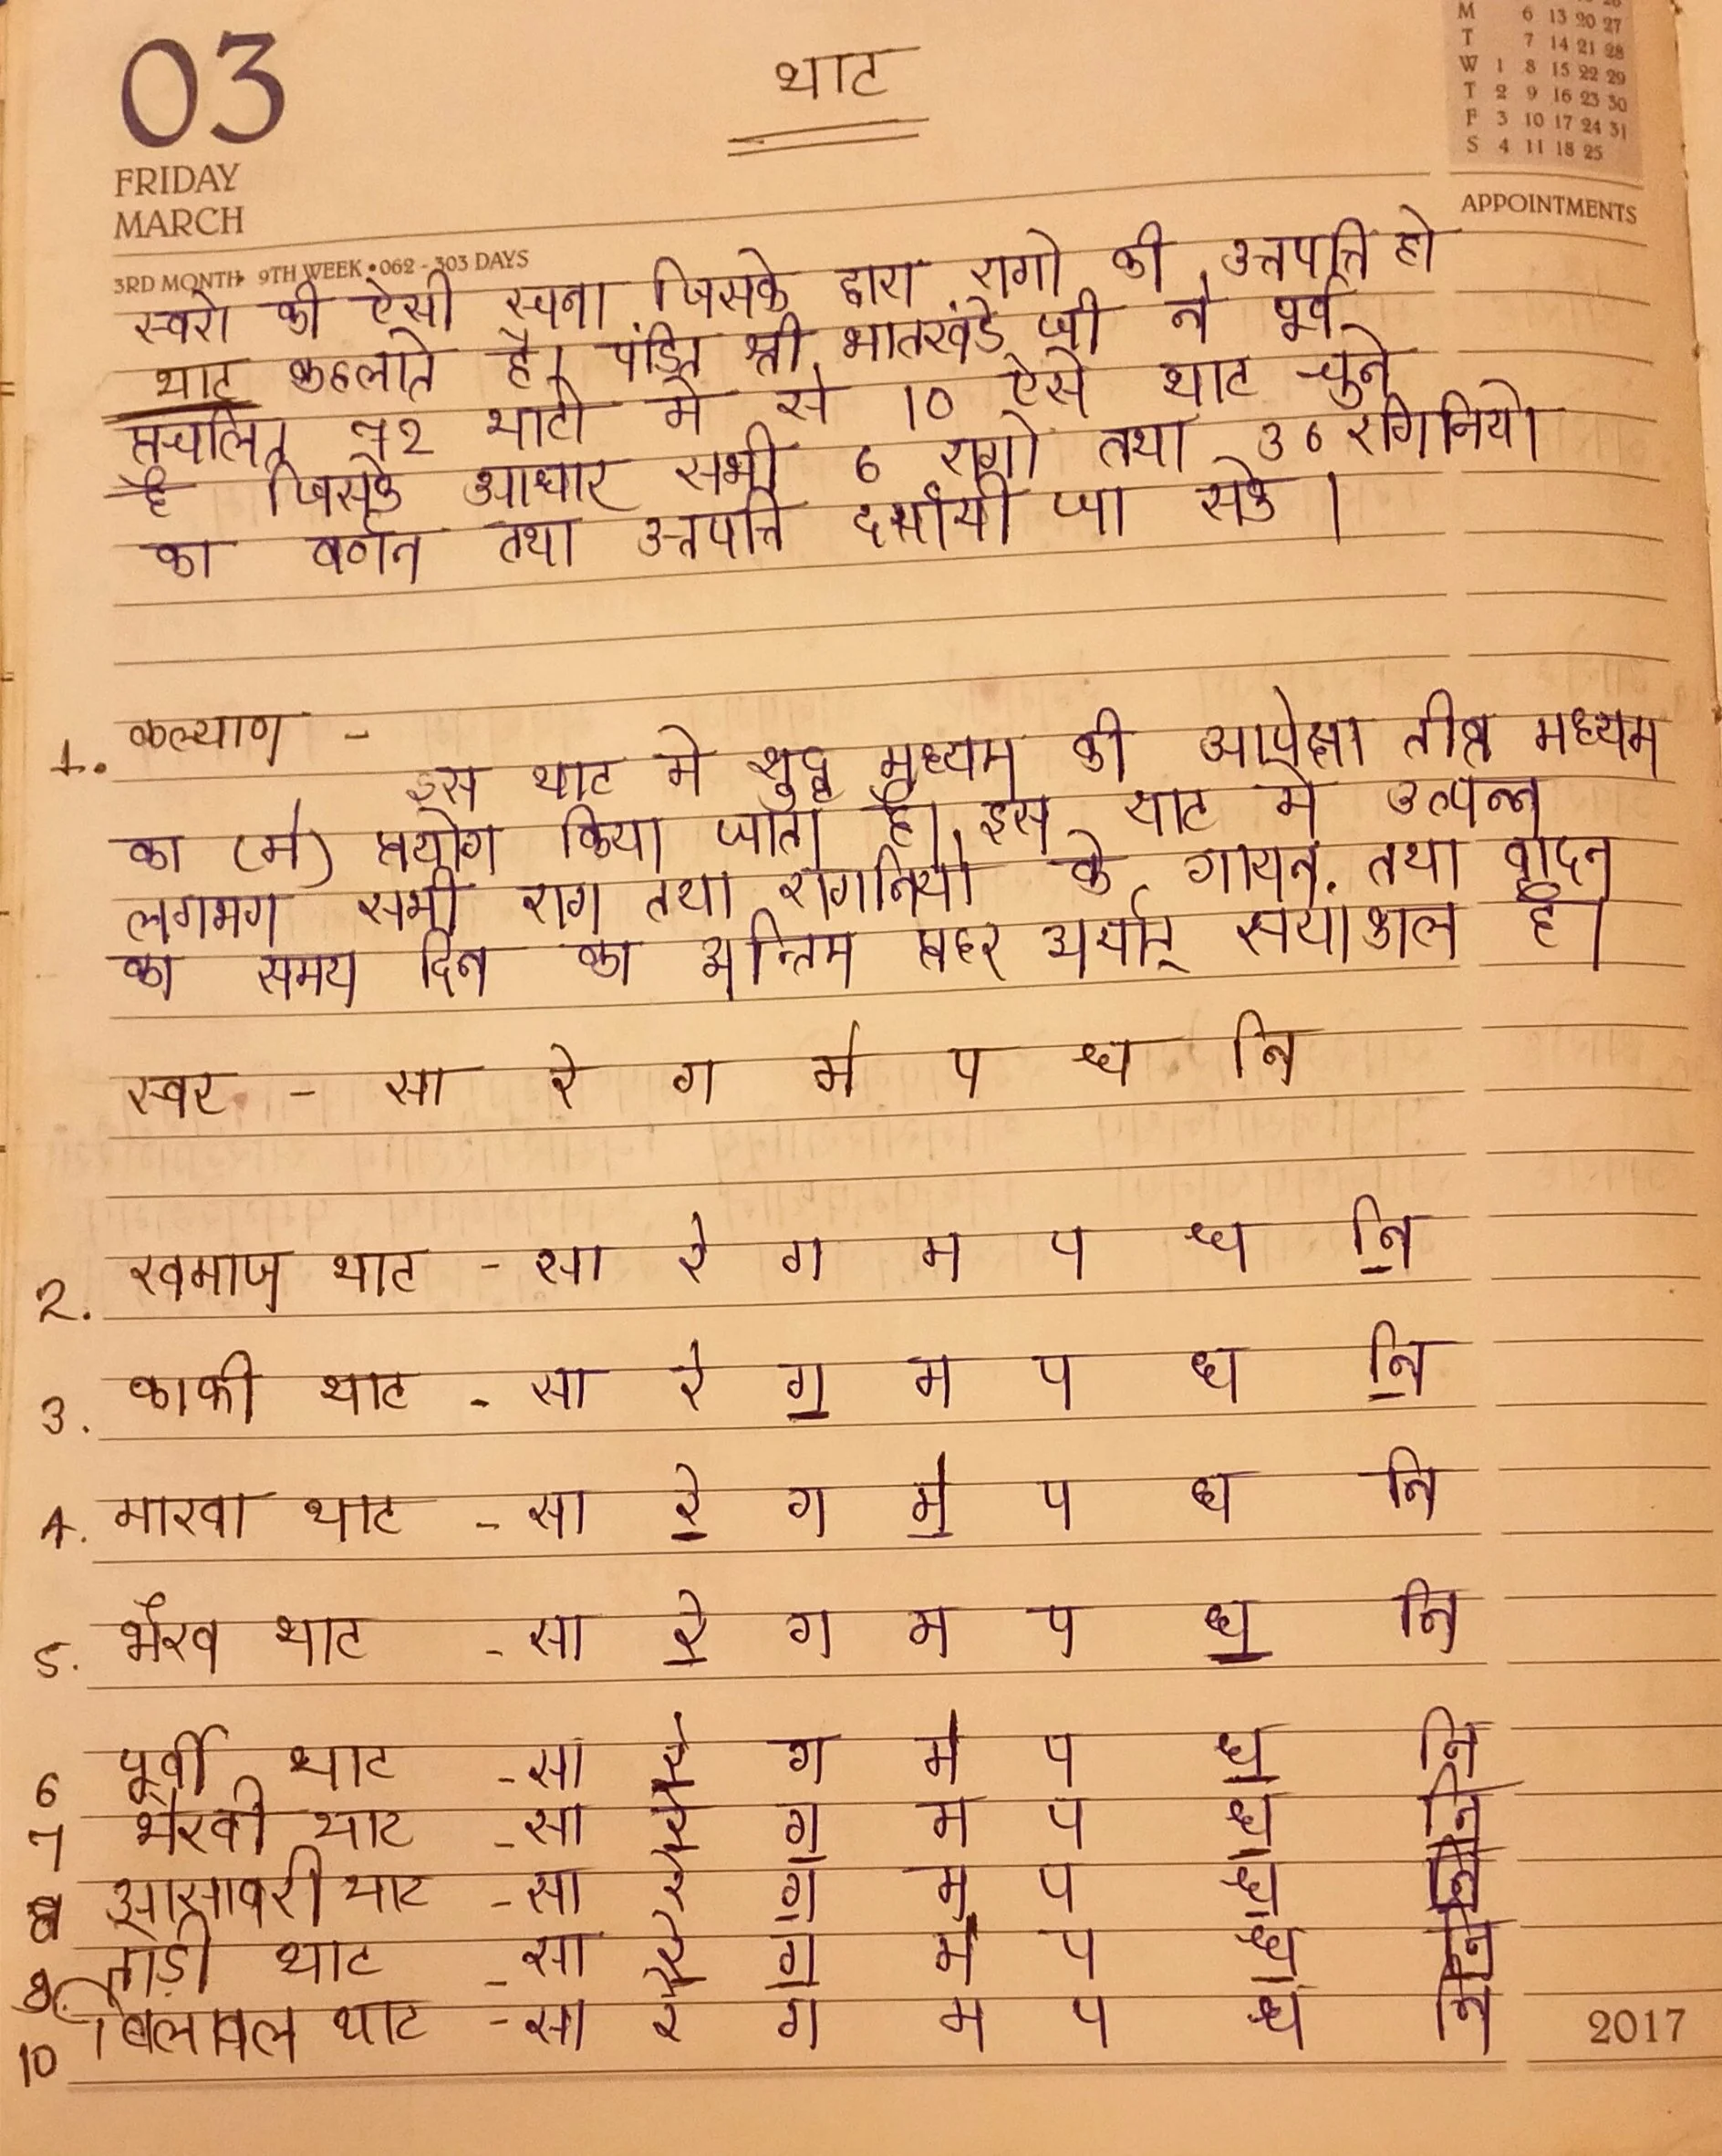 03
FRIDAY
MARCH
3RD MONTH • 9TH WEEK • 062 - 303 DAYS
M 6 13 20 27
T 7 14 21 28
W 1 8 15 22 29
T 2 9 16 23 30
F 3 10 17 24 31
S 4 11 18 25
APPOINTMENTS
थाट
स्वरो की ऐसी रचना जिसके द्वारा रागो की उत्तपत्ति हो
थाट कहलाते है। पंडित श्री भातखंडे जी ने पूर्व
प्रचलित 72 थाटो मे से 10 ऐसे थाट चुने
है जिसके आधार सभी 6 रागो तथा 36 रागिनियो
का वर्णन तथा उत्तपत्ति दर्शायी जा सके।
1. कल्याण -
इस थाट मे शुद्ध मध्यम की आपेक्षा तीव्र मध्यम
का (म॑) प्रयोग किया जाता है। इस थाट मे उत्पन्न
लगभग सभी राग तथा रागनियो के गायन तथा वादन
का समय दिन का अन्तिम प्रहर अर्थात् सयाकाल है।
स्वर - सा रे ग म॑ प ध नि
2. खमाज थाट - सा रे ग म प ध नि॒
3. काफी थाट - सा रे ग॒ म प ध नि॒
4. मारवा थाट - सा रे॒ ग म॒॑ प ध नि
5. भैरव थाट - सा रे॒ ग म प ध॒ नि
6 पूर्वी थाट - सा रे॒ ग म॑ प ध॒ नि
7 भैरवी थाट - सा रे॒ ग॒ म प ध॒ नि॒
8 आसावरी थाट - सा रे ग॒ म प ध॒ नि॒
9. तोड़ी थाट - सा रे॒ ग॒ म॑ प ध॒ नि
10 बिलावल थाट - सा रे ग म प ध नि
2017